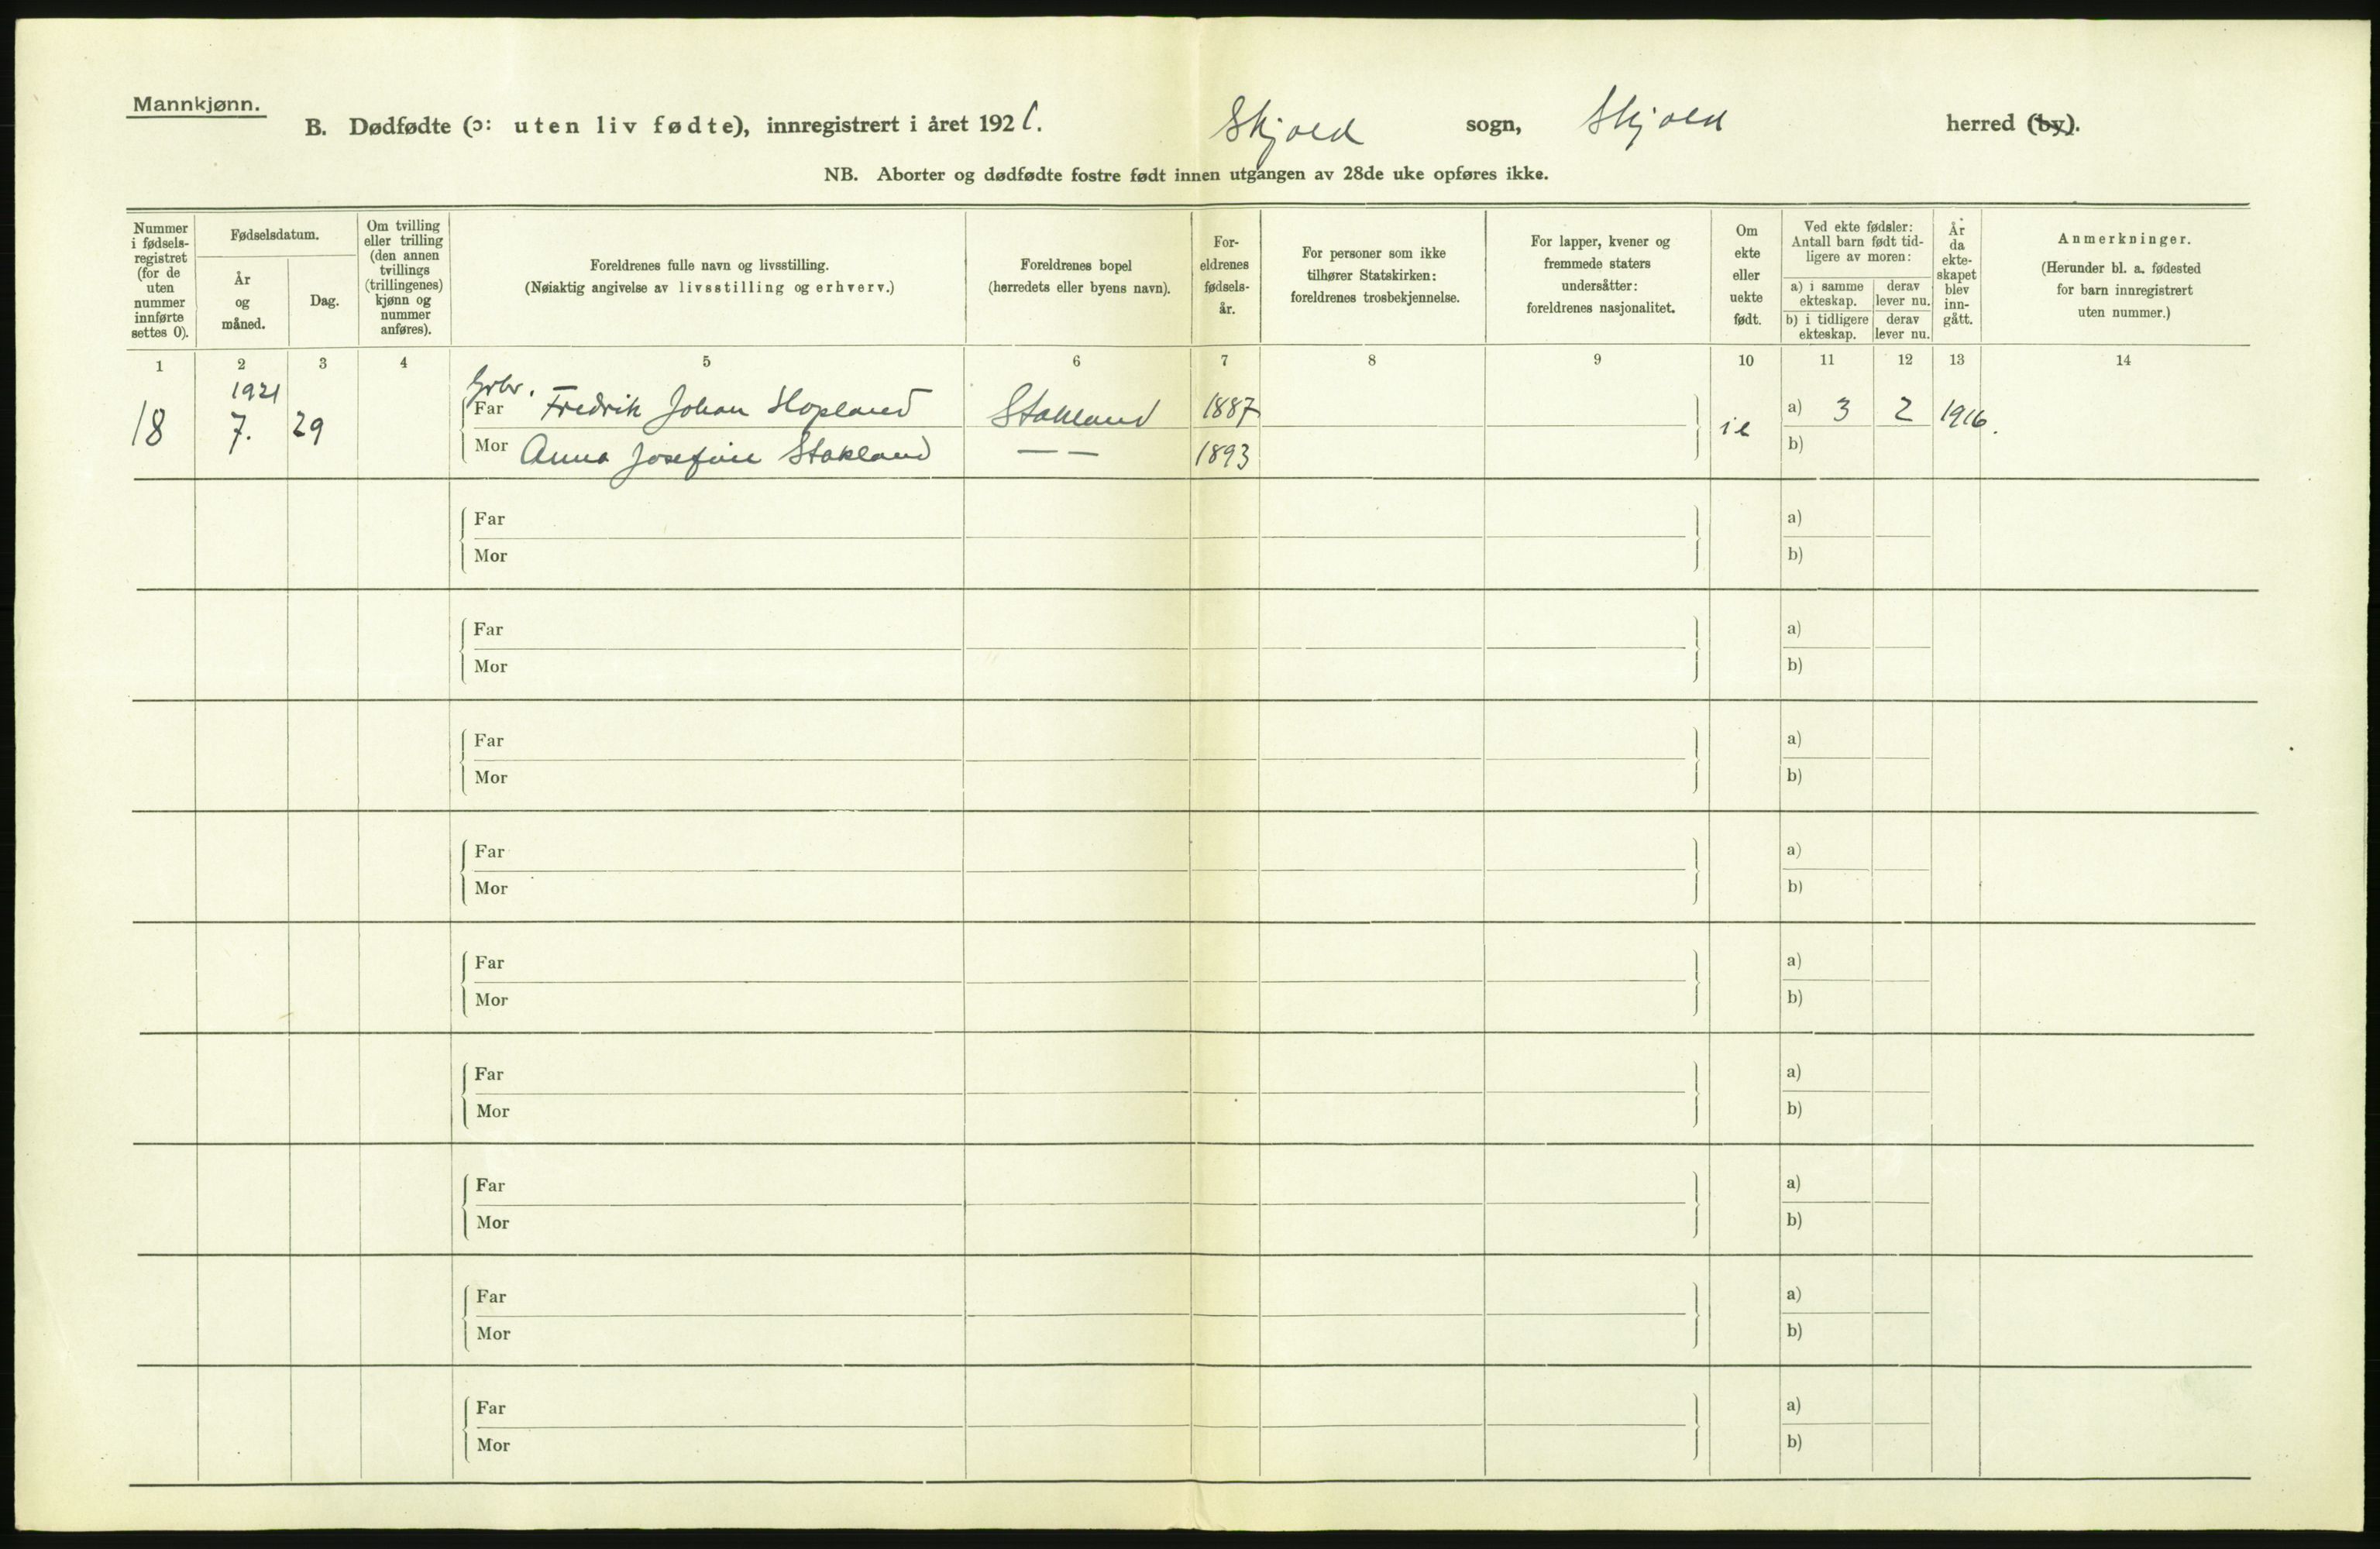 Mannkjønn.
B. Dødfødte (ɔ: uten liv fødte), innregistrert i året 1921. Skjold sogn, Skjold herred (by).
NB. Aborter og dødfødte fostre født innen utgangen av 28de uke opføres ikke.
Nummer i fødsels- registret (for de uten nummer innførte settes 0).
Fødselsdatum.
År og måned.
Dag.
Om tvilling eller trilling (den annen tvillings (trillingenes) kjønn og nummer anføres).
Foreldrenes fulle navn og livsstilling.
(Nøiaktig angivelse av livsstilling og erhverv.)
Foreldrenes bopel
(herredets eller byens navn).
For- eldrenes fødsels- år.
For personer som ikke tilhører Statskirken: foreldrenes trosbekjennelse.
For lapper, kvener og fremmede staters undersåtter: foreldrenes nasjonalitet.
Om ekte eller uekte født.
Ved ekte fødsler: Antall barn født tid- ligere av moren:
a) i samme ekteskap.
derav lever nu.
b) i tidligere ekteskap.
derav lever nu.
År da ekte- skapet blev inn- gått.
Anmerkninger.
(Herunder bl. a. fødested for barn innregistrert uten nummer.)
1 2 3 4 5 6 7 8 9 10 11 12 13 14
1921 Grbr.
18 7. 29 Far Fredrik Johan Hopland Stakland 1887 ie a) 3 2 1916.
Mor Anna Josefine Stakland — — 1893 b)
Far a)
Mor b)
Far a)
Mor b)
Far a)
Mor b)
Far a)
Mor b)
Far a)
Mor b)
Far a)
Mor b)
Far a)
Mor b)
Far a)
Mor b)
Far a)
Mor b)